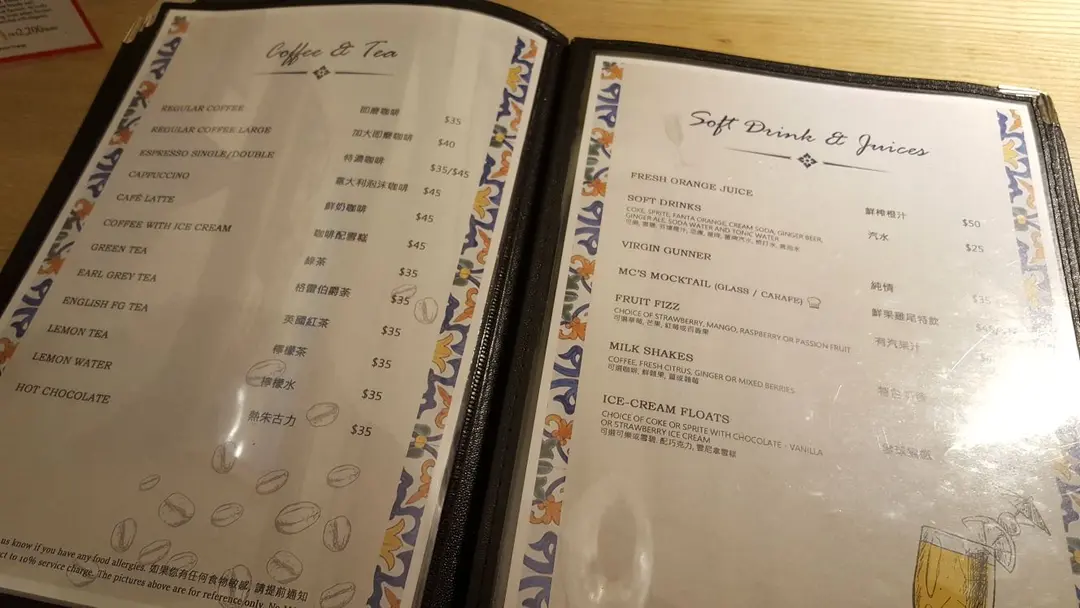 Coffee & Tea
REGULAR COFFEE 即磨咖啡 $35
REGULAR COFFEE LARGE 加大即磨咖啡 $40
ESPRESSO SINGLE/DOUBLE 特濃咖啡 $35/$45
CAPPUCCINO 意大利泡沫咖啡 $45
CAFÉ LATTE 鮮奶咖啡 $45
COFFEE WITH ICE CREAM 咖啡配雲糕 $45
GREEN TEA 綠茶 $35
EARL GREY TEA 格雷伯爵茶 $35
ENGLISH FG TEA 英國紅茶 $35
LEMON TEA 檸檬茶 $35
LEMON WATER 檸檬水 $35
HOT CHOCOLATE 熱朱古力 $35
us know if you have any food allergies. 如果您有任何食物敏感, 請提前通知
ct to 10% service charge. The pictures above are for reference only.
Soft Drink & Juices
FRESH ORANGE JUICE 鮮榨橙汁 $50
SOFT DRINKS 汽水 $25
COKE, SPRITE, FANTA ORANGE, CREAM SODA, GINGER BEER,
GINGER ALE, SODA WATER AND TONIC WATER
VIRGIN GUNNER 純情 $35
MC'S MOCKTAIL (GLASS / CARAFE) 鮮果雞尾特飲
FRUIT FIZZ 有汽果汁
CHOICE OF STRAWBERRY, MANGO, RASPBERRY OR PASSION FRUIT
MILK SHAKES
COFFEE, FRESH CITRUS, GINGER OR MIXED BERRIES
ICE-CREAM FLOATS
CHOICE OF COKE OR SPRITE WITH CHOCOLATE, VANILLA
OR STRAWBERRY ICE CREAM
可選可樂或雪碧, 配巧克力, 雲尼拿雪糕